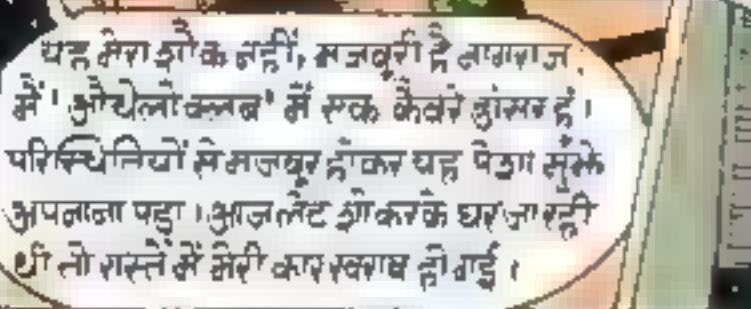 यह मेरा शौक नहीं, मजबूरी है नागराज,
मैं 'औथेलो क्लब' में एक कैबरे डांसर हूं।
परिस्थितियों से मजबूर होकर यह पेशा मुझे
अपनाना पड़ा। आज लेट शो करके घर जा रही
थी तो रास्ते में मेरी कार खराब हो गई।